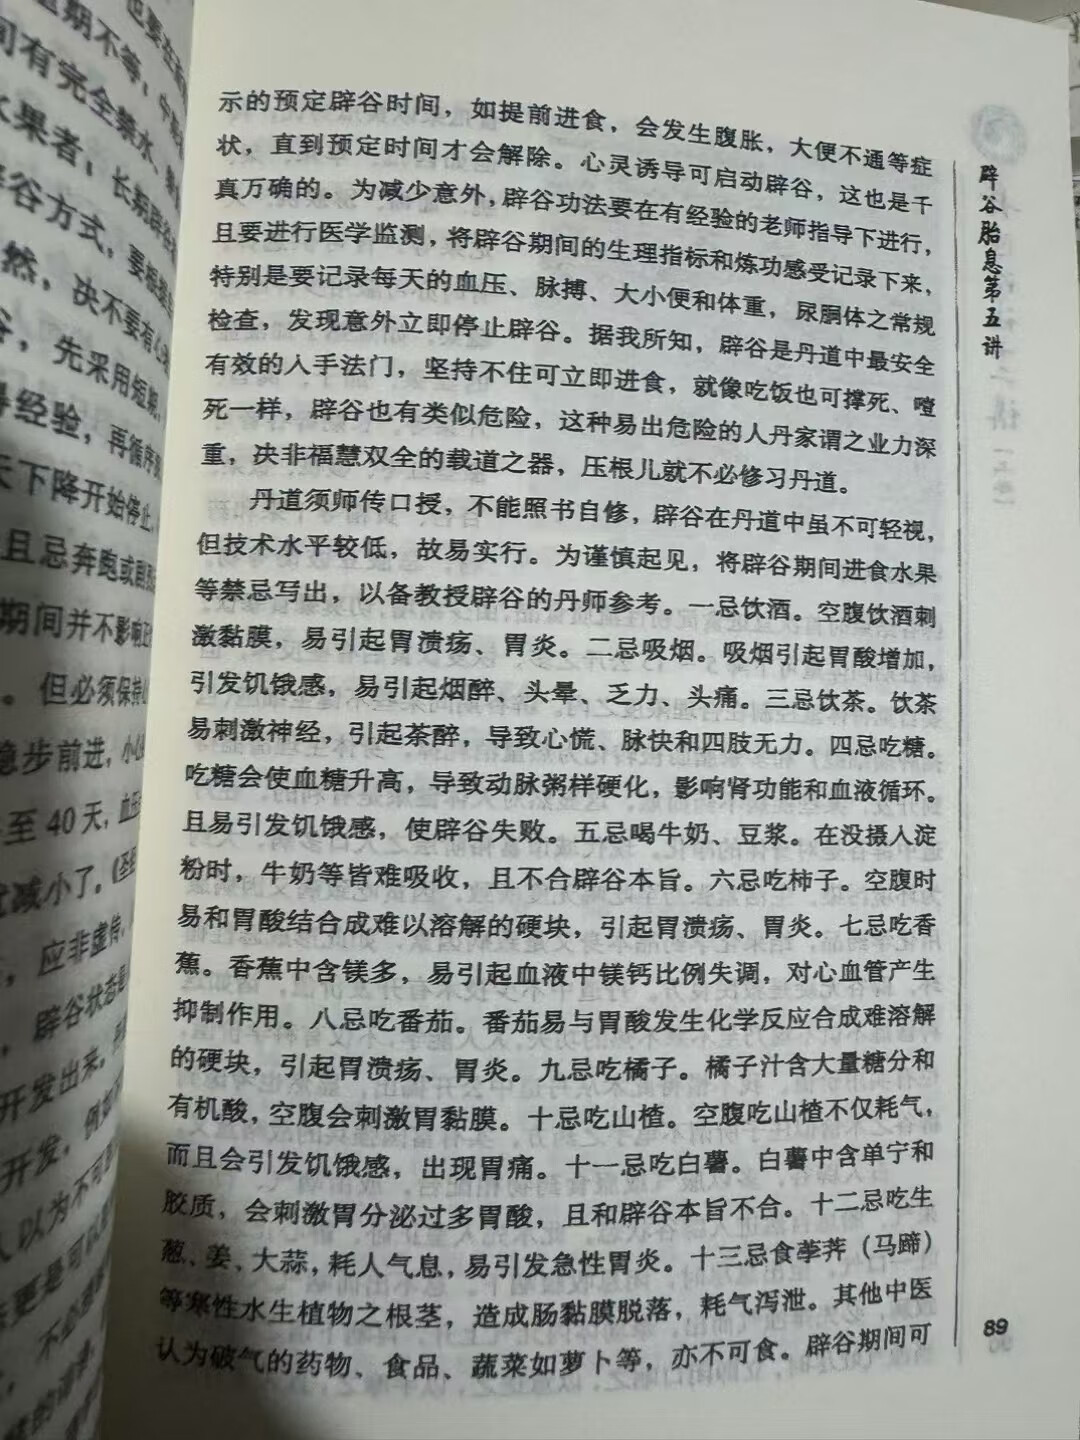 示的预定辟谷时间，如提前进食，会发生腹胀，大便不通等症
状，直到预定时间才会解除。心灵诱导可启动辟谷，这也是千
真万确的。为减少意外，辟谷功法要在有经验的老师指导下进行，
且要进行医学监测，将辟谷期间的生理指标和炼功感受记录下来，
特别是要记录每天的血压、脉搏、大小便和体重，尿酮体之常规
检查，发现意外立即停止辟谷。据我所知，辟谷是丹道中最安全
有效的入手法门，坚持不住可立即进食，就像吃饭也可撑死、噎
死一样，辟谷也有类似危险，这种易出危险的人丹家谓之业力深
重，决非福慧双全的载道之器，压根儿就不必修习丹道。
丹道须师传口授，不能照书自修，辟谷在丹道中虽不可轻视，
但技术水平较低，故易实行。为谨慎起见，将辟谷期间进食水果
等禁忌写出，以备教授辟谷的丹师参考。一忌饮酒。空腹饮酒刺
激黏膜，易引起胃溃疡、胃炎。二忌吸烟。吸烟引起胃酸增加，
引发饥饿感，易引起烟醉、头晕、乏力、头痛。三忌饮茶。饮茶
易刺激神经，引起茶醉，导致心慌、脉快和四肢无力。四忌吃糖。
吃糖会使血糖升高，导致动脉粥样硬化，影响肾功能和血液循环。
且易引发饥饿感，使辟谷失败。五忌喝牛奶、豆浆。在没摄入淀
粉时，牛奶等皆难吸收，且不合辟谷本旨。六忌吃柿子。空腹时
易和胃酸结合成难以溶解的硬块，引起胃溃疡、胃炎。七忌吃香
蕉。香蕉中含镁多，易引起血液中镁钙比例失调，对心血管产生
抑制作用。八忌吃番茄。番茄易与胃酸发生化学反应合成难溶解
的硬块，引起胃溃疡、胃炎。九忌吃橘子。橘子汁含大量糖分和
有机酸，空腹会刺激胃黏膜。十忌吃山楂。空腹吃山楂不仅耗气，
而且会引发饥饿感，出现胃痛。十一忌吃白薯。白薯中含单宁和
胶质，会刺激胃分泌过多胃酸，且和辟谷本旨不合。十二忌吃生
葱、姜、大蒜，耗人气息，易引发急性胃炎。十三忌食荸荠（马蹄）
等寒性水生植物之根茎，造成肠黏膜脱落，耗气泻泄。其他中医
认为破气的药物、食品、蔬菜如萝卜等，亦不可食。辟谷期间可
辟谷胎息第五讲
89
期不等，
间有完全禁水、
水果者，长期辟谷
谷方式，要根据
然，决不要有
谷，先采用短期，
经验，再循序
天下降开始停止，
且忌奔跑或剧烈
期间并不影响正
。但必须保持
稳步前进，小
至40天，血压
减小了。
，应非虚传，
，辟谷状态是
开发出来，
开发，例如
以为不可
更是可以